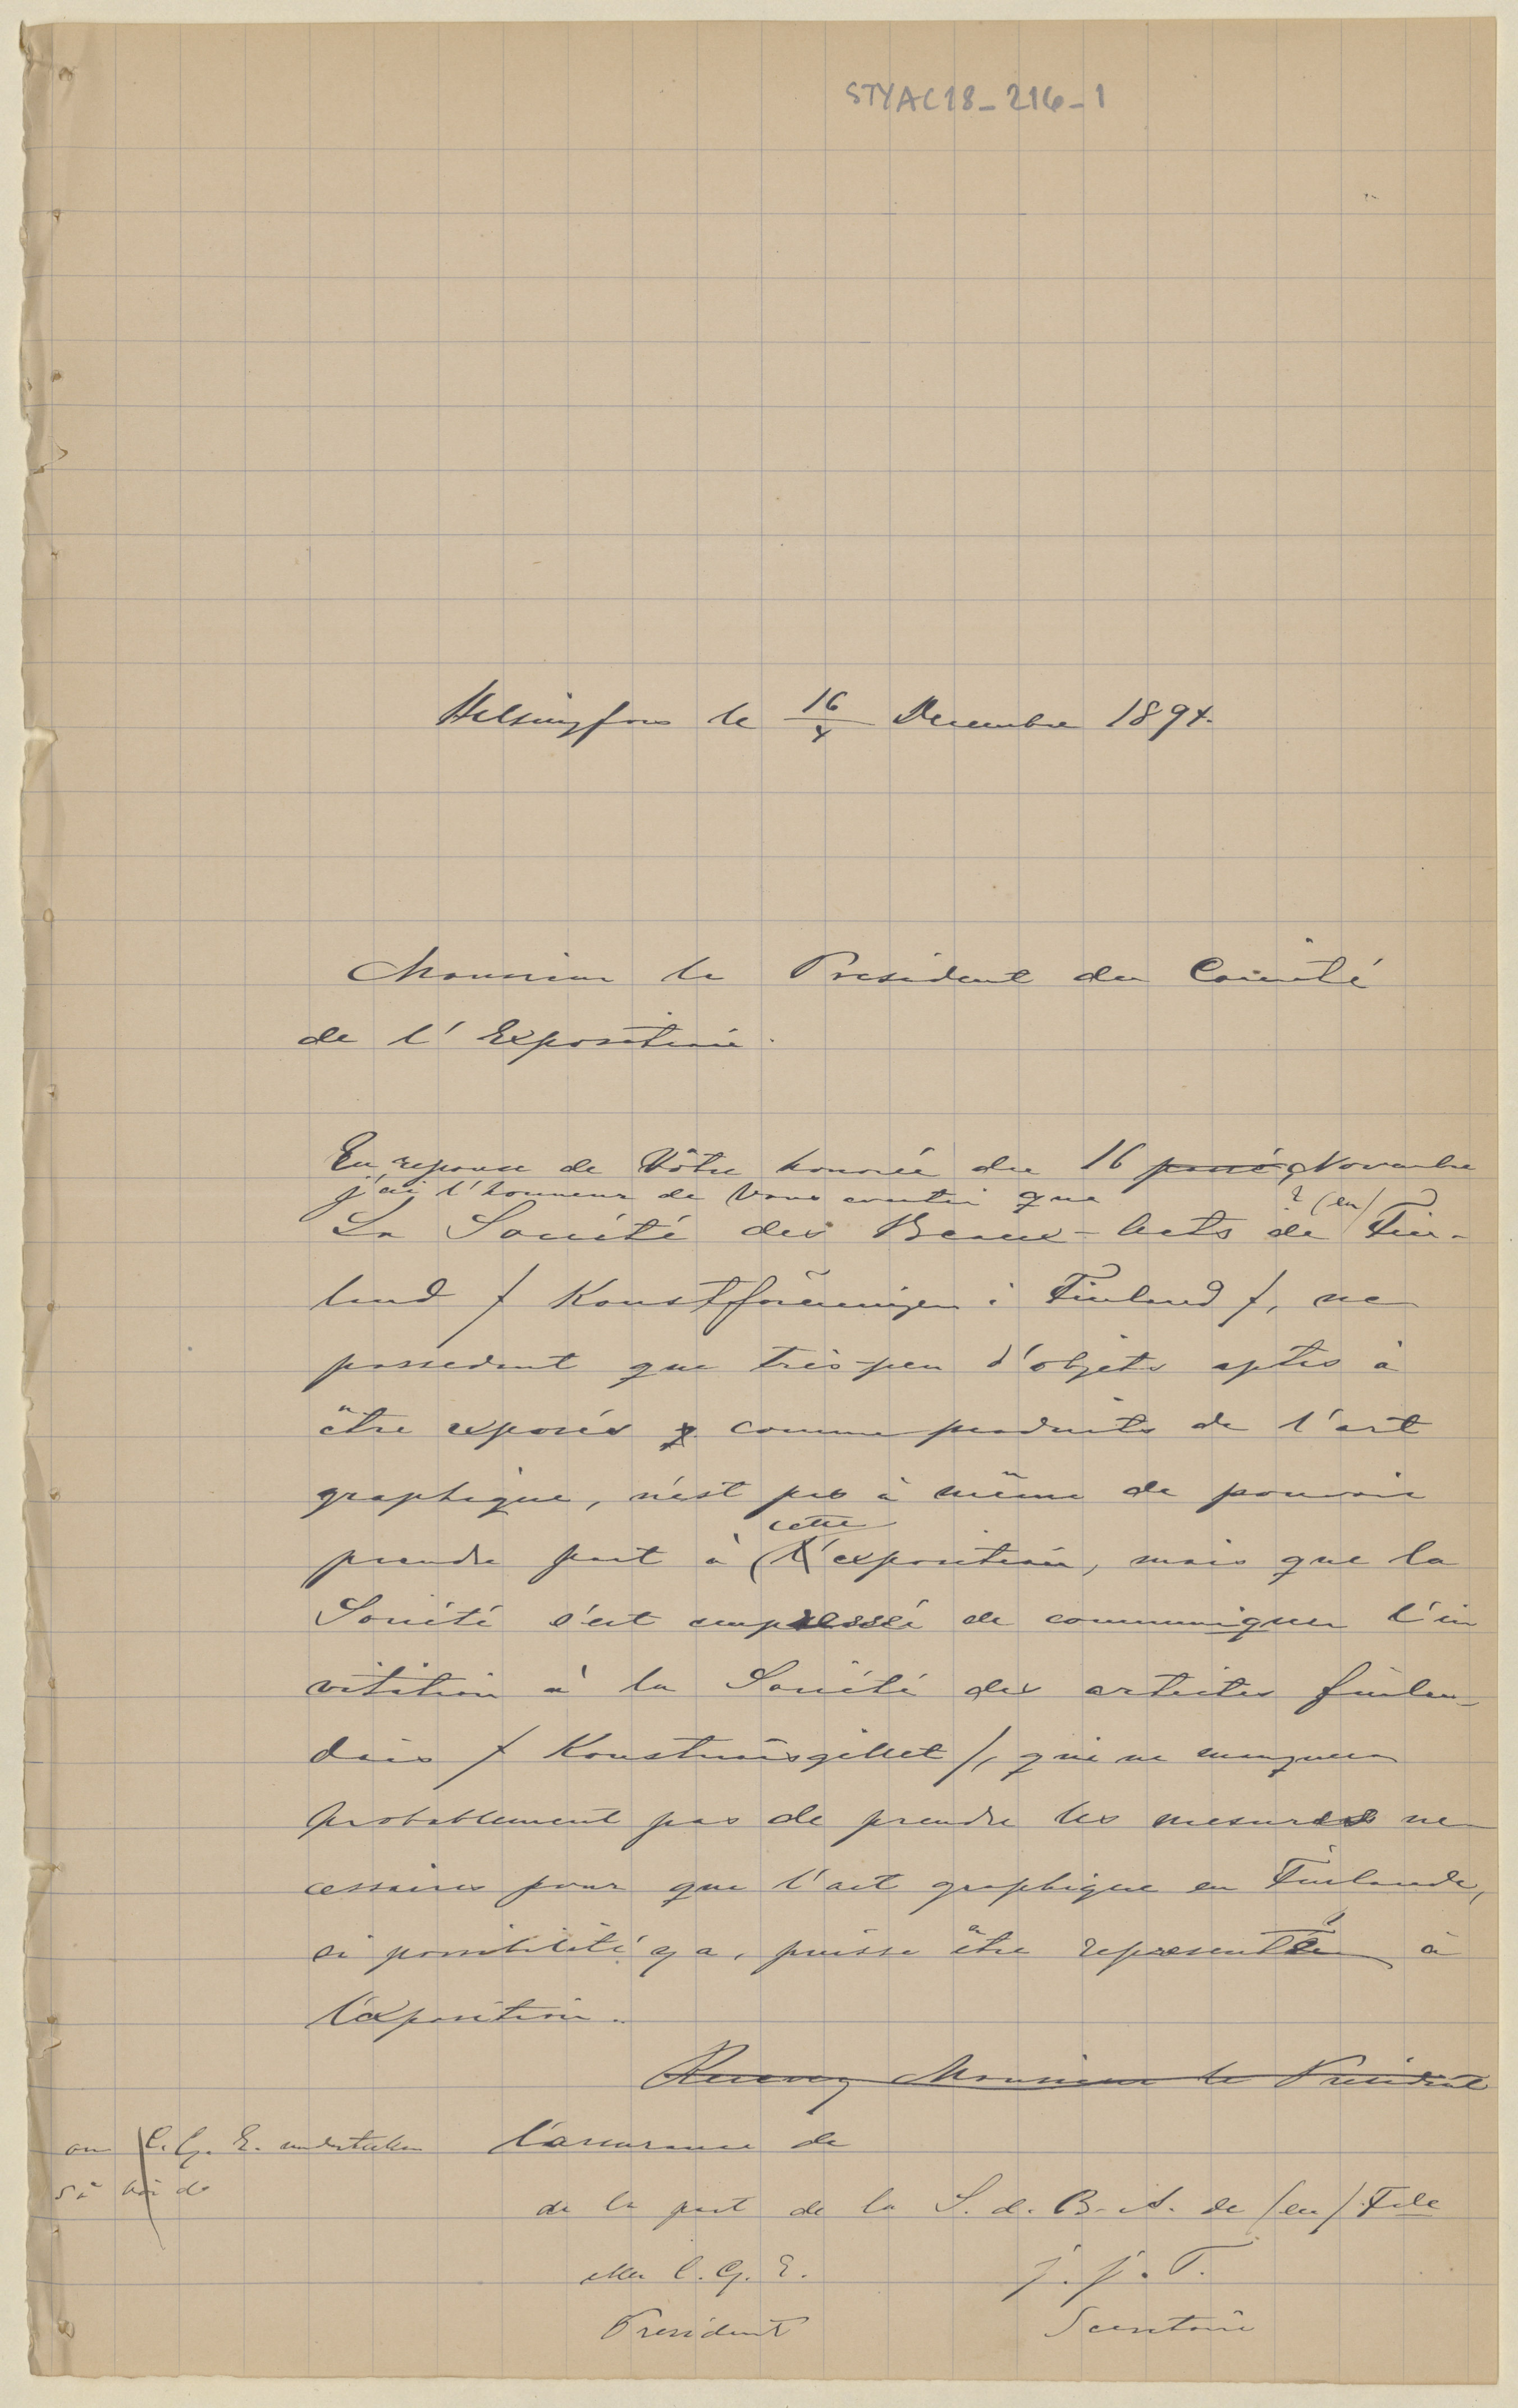 STYAC18_216_1
Helsingfors le 16/4 Decembre 1894.
Monsieur le President du Comité
de l'Exposition.
En reponse de Vôtre honorée du 16 passé, Novembre
j'ai l'honneur de Vous que
La Société des Beaux-Arts de ? (en) Fin-
land / Konstföreningen i Finland /, ne
possedant que très peu d'objets aptes à
être exposés comme produits de l'art
graphique, n'est pas à même de pouvoir
prendre part à (l' cette exposition, mais que la
Société s'est empressé de communiquer l'in
vitation à la Société des artistes finlan-
dais / Konstnärsgillet /, qui ne manquera
probablement pas de prendre les mesures ne
cessaires pour que l'art graphique en Finlande,
si possibilité y a, puisse être representé à
l'exposition.
Recevez Monsieur le President
l'assurance de
om C. G. E. undertecknar
så bör do
de la part de la S. d. B-A. de (en) Fde
eller C. G. E. J. J. T.
President Secretaire